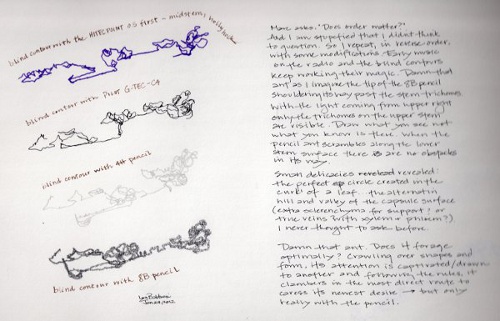 blind contour with the HITECPOINT as first - midstems, hairy
blind contour with Pilot G-TEC-C4
blind contour with 4H pencil
blind contour with 8B pencil
Marc asks. "Does order matter?"
And I am stupefied that I didn't think
to question. So I repeat, in reverse order,
with some modifications. Early music
on the radio and the blind contours
keep working their magic. Damn that
ant as I imagine the tip of the 8B pencil
shouldering its way past the stem trichomes.
With the light coming from upper right
only the trichomes on the upper stem
are visible. Draw what you see not
what you know is there. When the
pencil ant scrambles along the lower
stem surface there are no obstacles
in its way.
Small delicacies revealed:
the perfect circle created in the
curl of a leaf. the alternating
hill and valley of the capsule surface
(extra sclerenchyma for support? or
true veins with xylem & phloem?)
I never thought to ask before.
Damn that ant. Does it forage
optimally? Crawling over shapes and
form, its attention is captivated/drawn
to another and following the rules, it
clambers in the most direct route to
caress its newest desire → but only
really with the pencil.